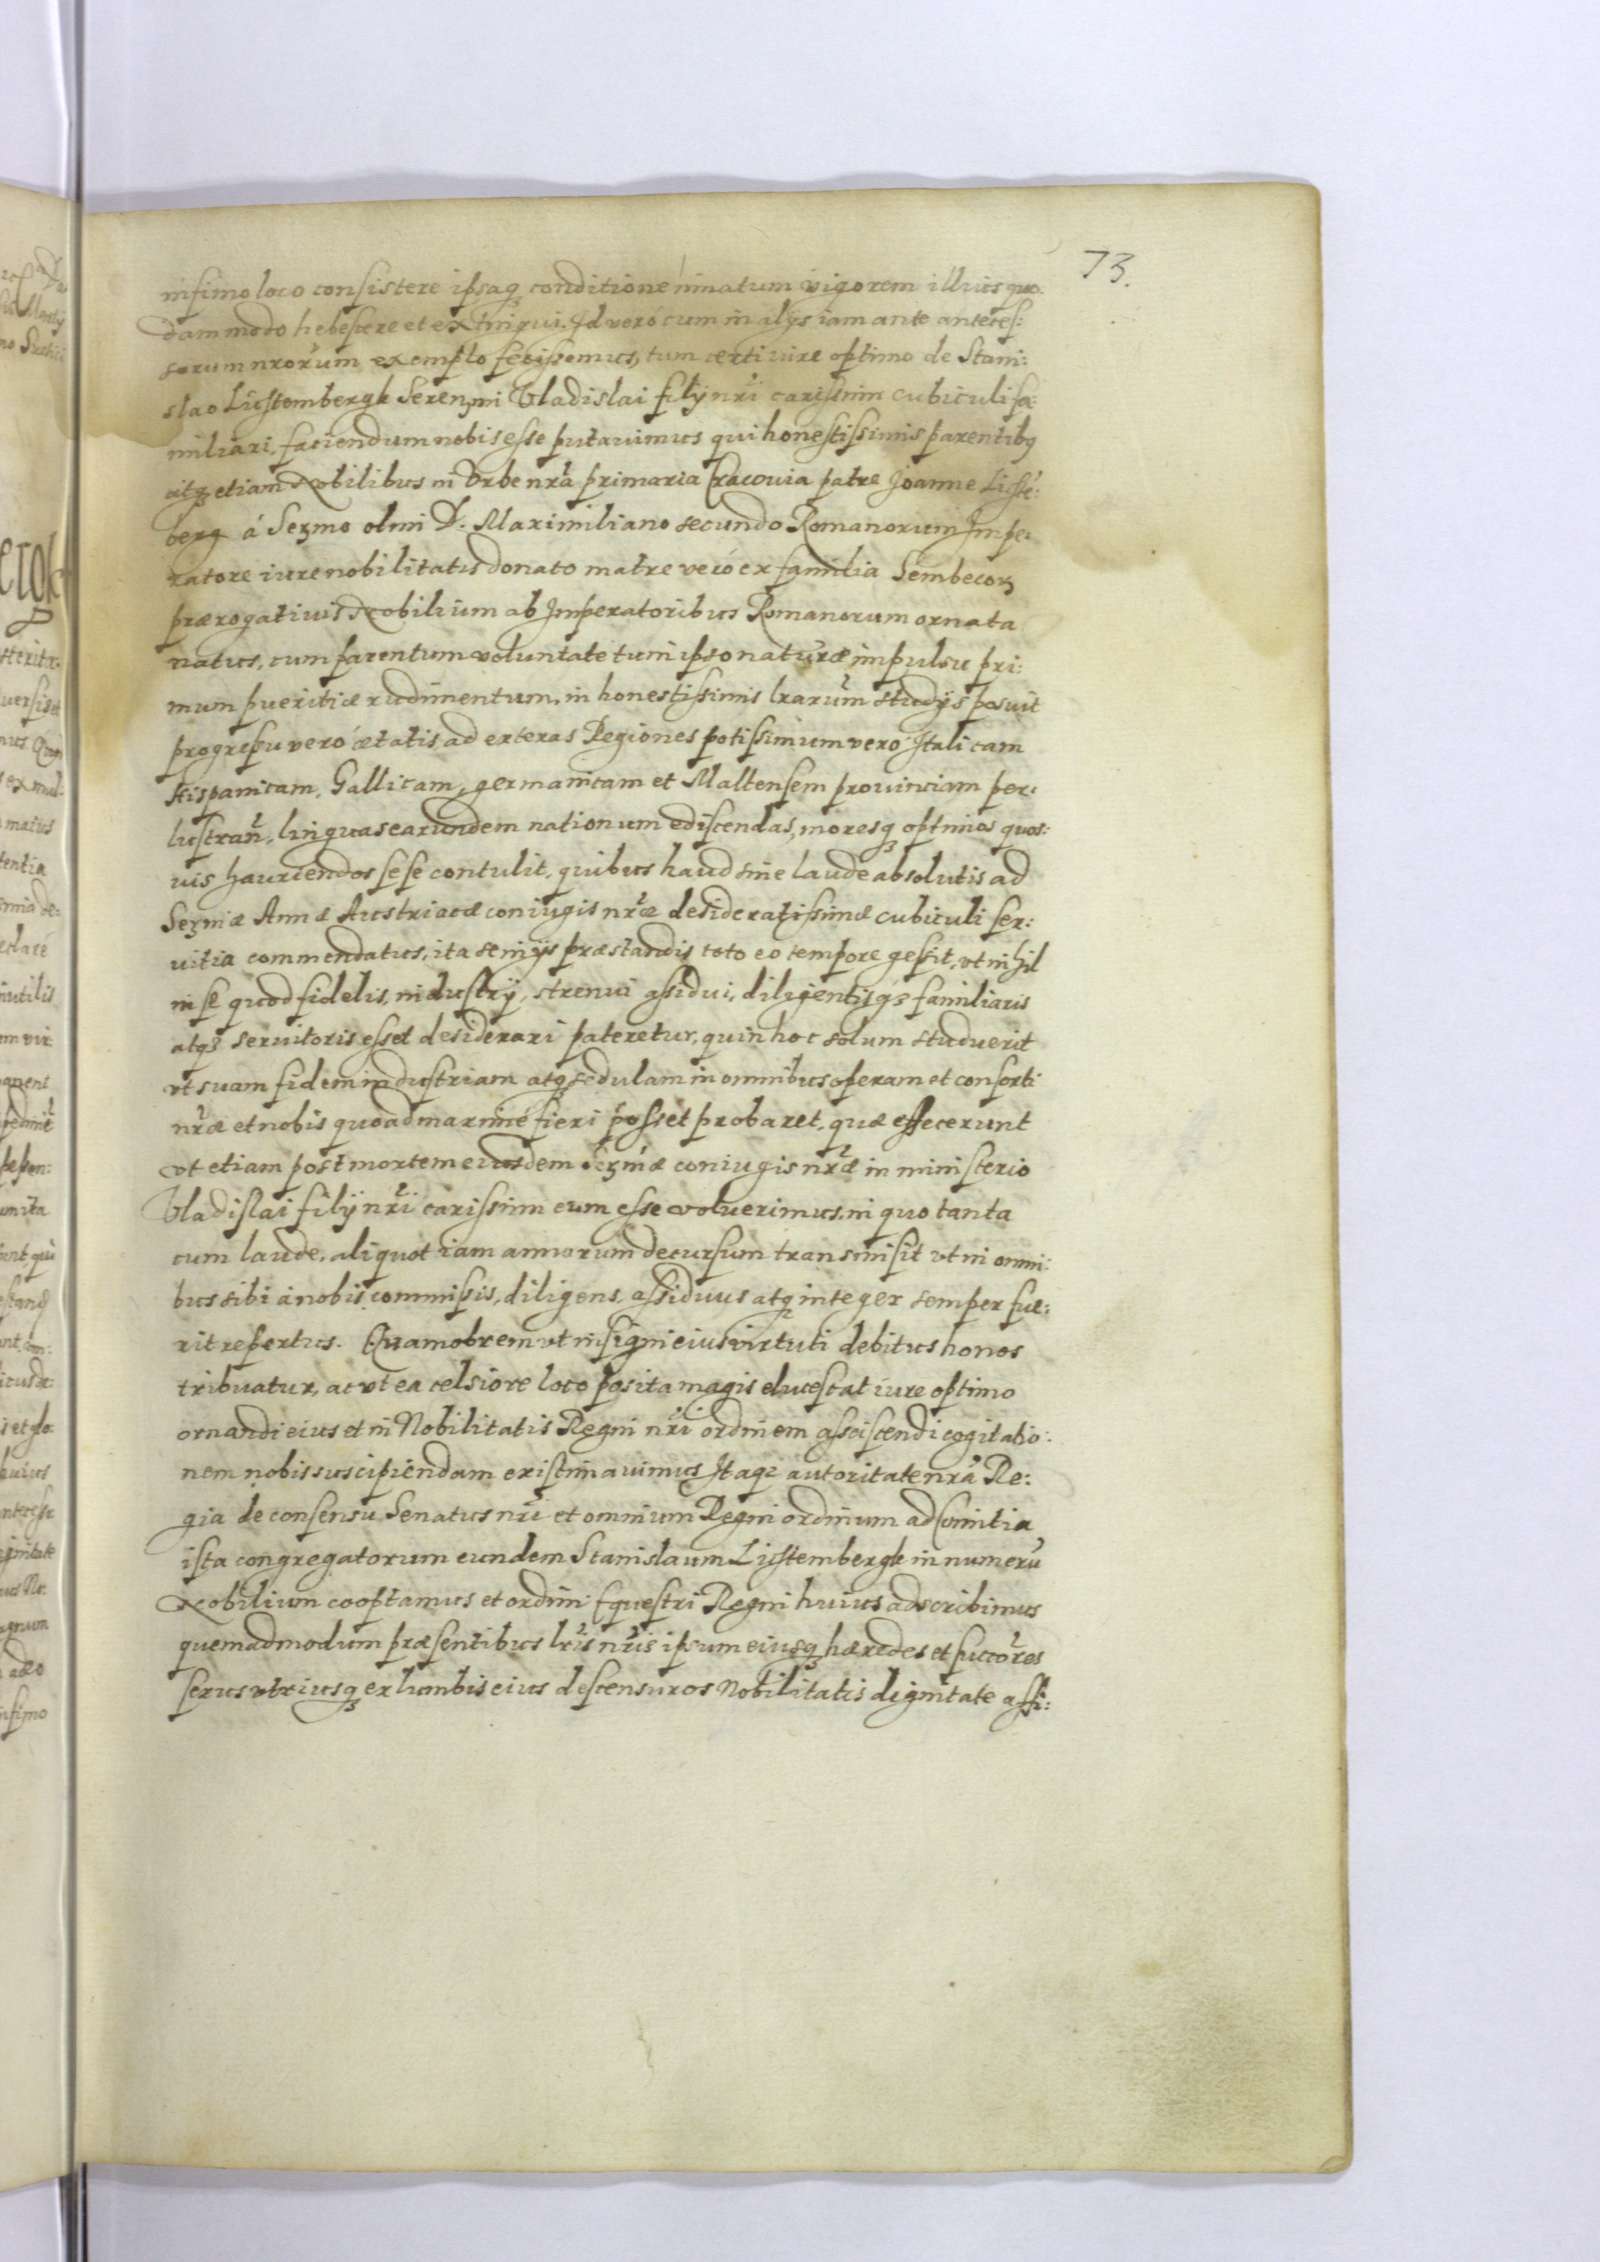 73.
infimo loco consistere ipsaq conditione innatum vigorem illius quo
dam modo hebescere et extingui. Id vero cum in alijs iam ante anteces:
sorum nrorum exemplo fecissemus, tum certi iure optimo de Stani:
slao Lichtembergk Serenmi Vladislai filij nri carissimi cubiculi fa:
miliari, faciendum nobis esse putavimus qui honestissimis parentibq
atq etiam Nobilibus in Urbe nra primaria Cracovia patre Joanne Lichte:
berg á Sermo olim D. Maximiliano secundo Romanorum Impe:
ratore iure nobilitatis donato matre veró ex familia Sembecor
prærogativis Nobilium ab Imperatoribus Romanorum ornata
natus, cum parentum voluntate tum ipso naturæ impulsu pri:
mum pueritiæ rudimentum, in honestissimis lrarum studijs posuit
progressu veró ætatis ad exteras Regiones potissimum vero Italicam
Hispanicam, Gallicam, germanicam et Maltensem provinciam per:
lustran, linguas earundem nationum ediscendas, moresq optimos quos:
vis hauriendos sese contulit, quibus haud sine laude absolutis ad
Sermæ Annæ Austriacæ coniugis nræ desideratissimæ cubiculi ser:
vitia commendatus, ita se in ijs præstandis toto eo tempore gessit, ut nihil
in se quod fidelis, industrij, strenui assidui, diligentisq familiaris
atq servitoris esset desiderari pateretur, quin hoc solum studuerit
vt suam fidem industriam atq sedulam in omnibus operam et consorti
nræ et nobis quoad maximé fieri posset probaret, quæ effecerunt
vt etiam post mortem eiusdem Sermæ coniugis nræ in ministerio
Vladislai filij nri carissimi eum esse voluerimus, in quo tanta
cum laude, aliquot iam annorum decursum transmisit vt in omni:
bus sibi á nobis commissis, diligens, assiduus atq integer semper fue:
rit repertus. Quamobrem vt insigni eius virtuti debitus honos
tribuatur, ac vt ea celsiore loco posita magis elucescat iure optimo
ornandi eius et in Nobilitatis Regni nri ordinem assciscendi cogitatio:
nem nobis suscipiendam existimavimus Itaq autoritate nra Re:
gia de consensu Senatus nri et omnium Regni ordinum ad comitia
ista congregatorum eundem Stanislaum Lichtembergk in numeru
Nobilium cooptamus et ordini Equestri Regni huius adscribimus
quemadmodum præsentibus lris nris ipsum eiusq hæredes et succores
sexus utriusq ex lumbis eius descensuros Nobilitatis dignitate affi: